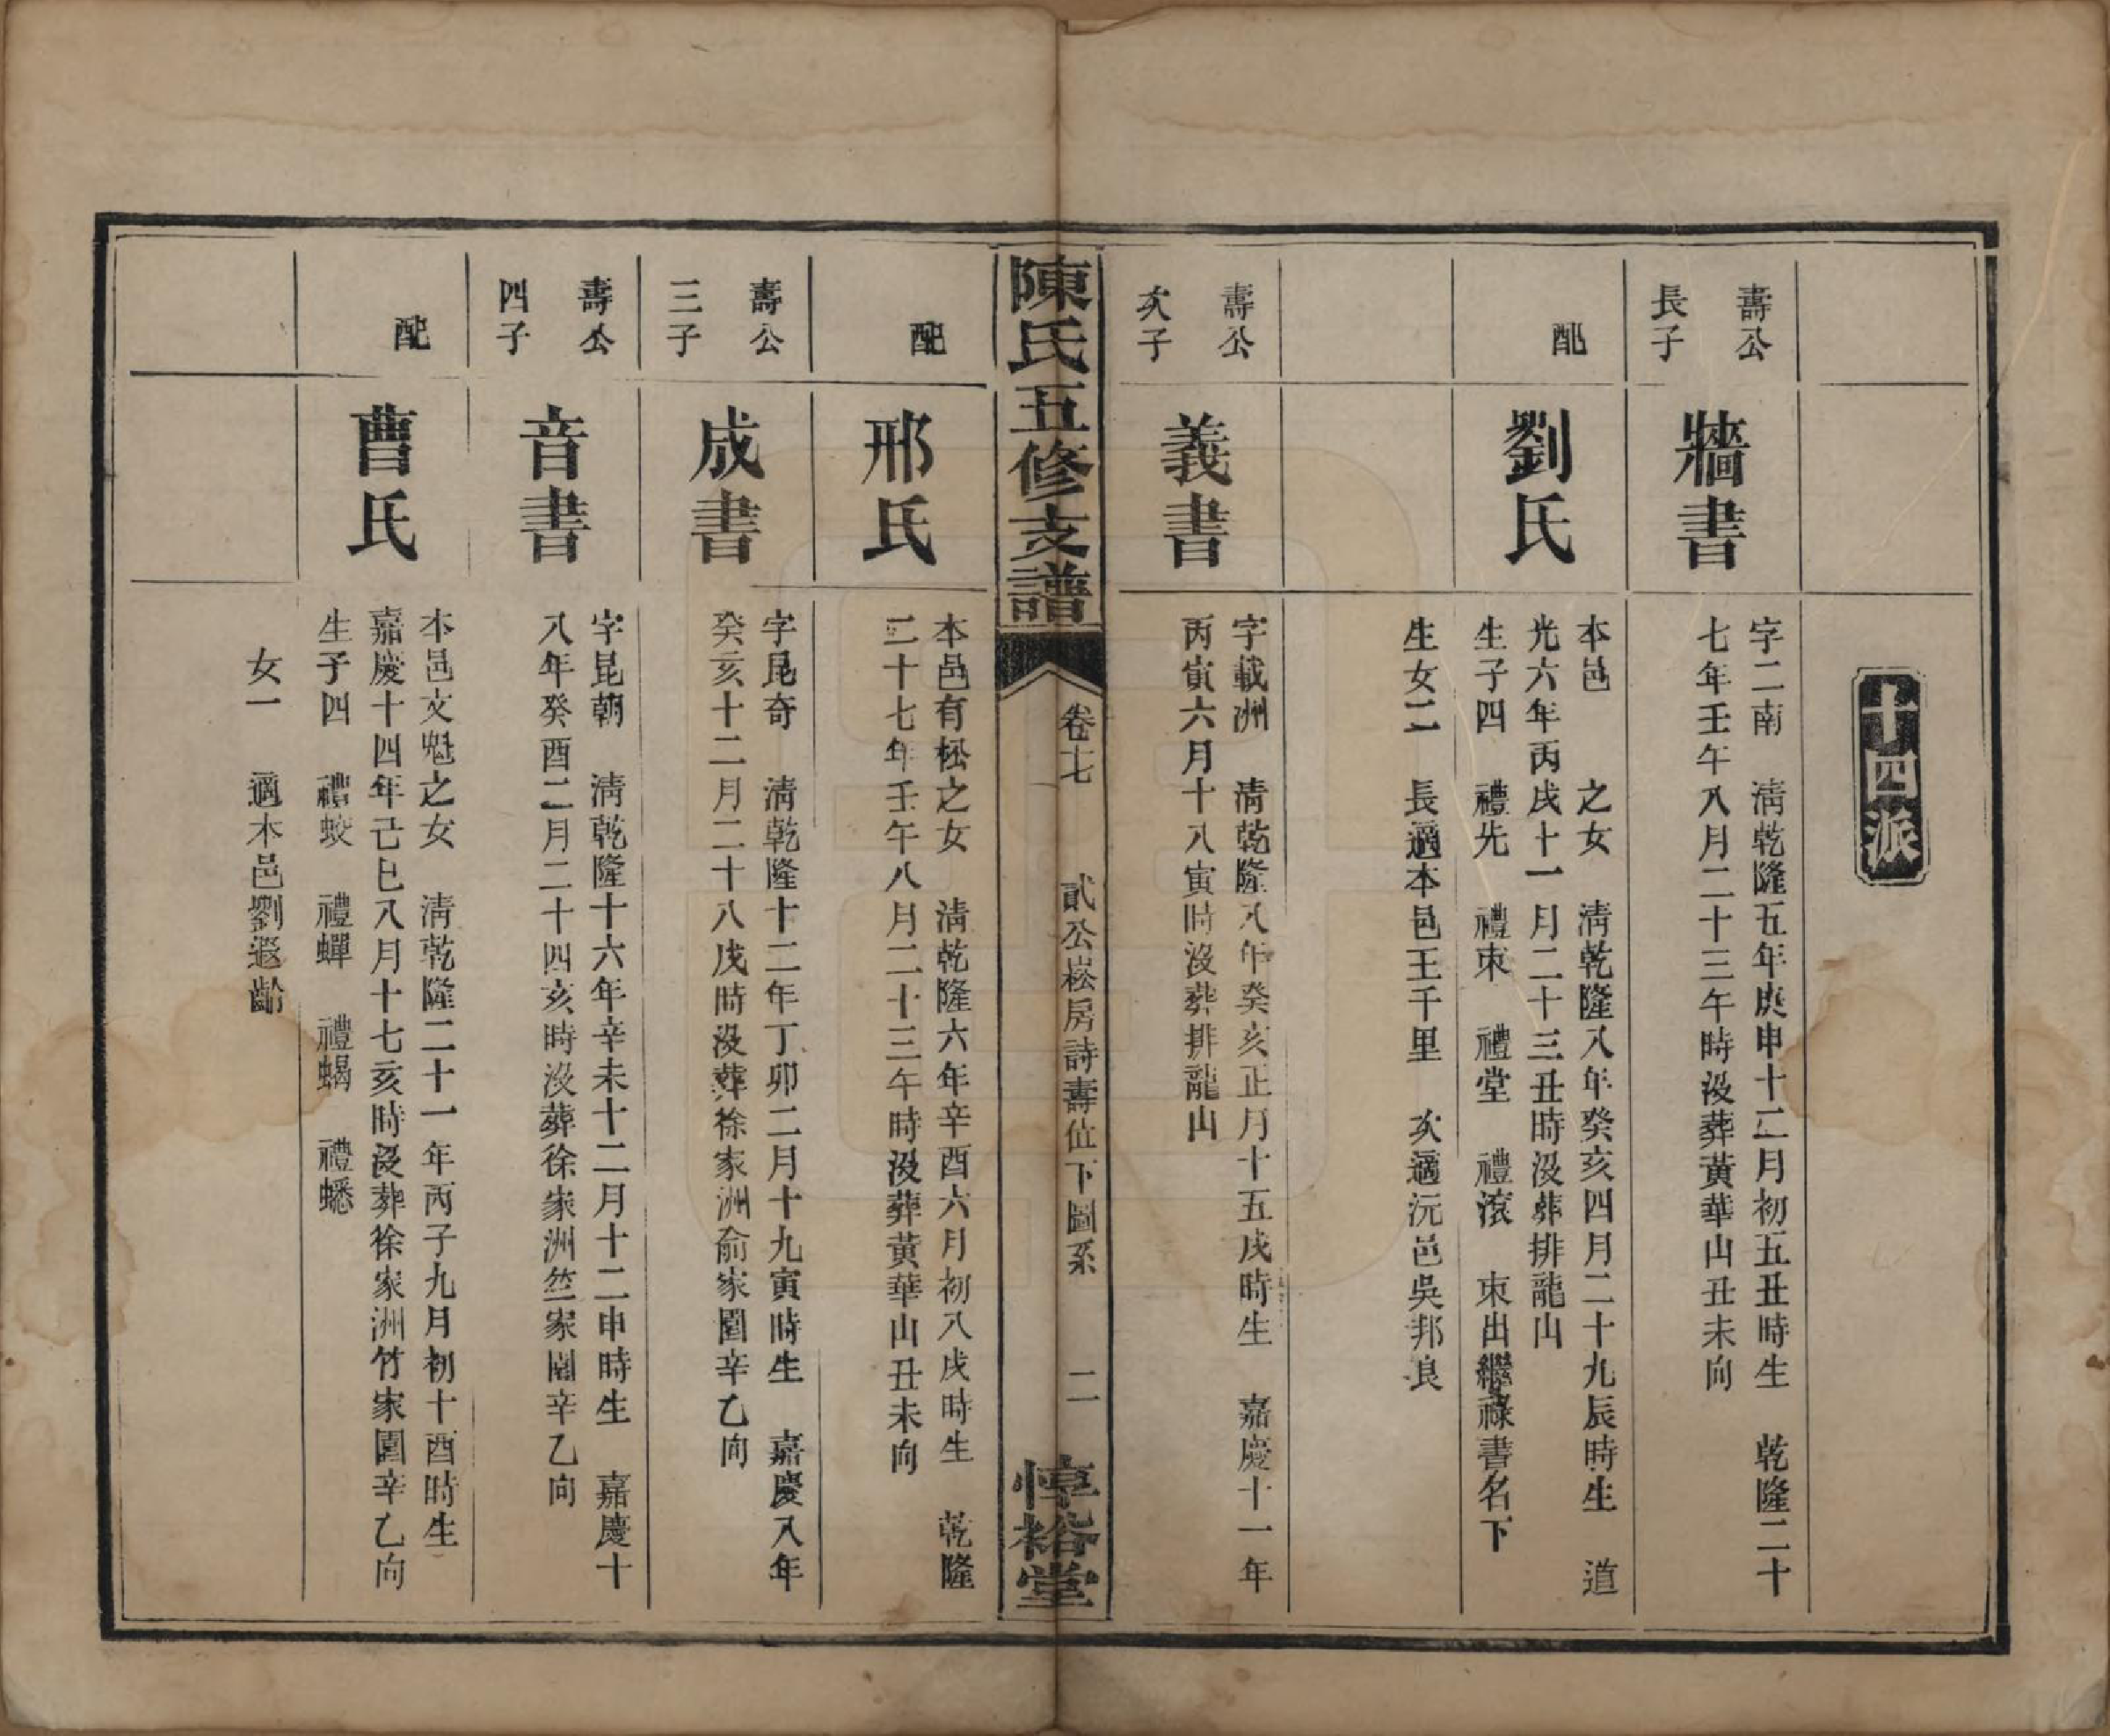 十四派
壽公
長子
牆書
字二南　清乾隆五年庚申十二月初五丑時生　乾隆二十
七年壬午八月二十三午時沒葬黃華山丑未向
配
劉氏
本邑　　之女　清乾隆八年癸亥四月二十九辰時生　道
光六年丙戌十一月二十三丑時沒葬排龍山
生子四　禮先　禮朿　禮堂　禮滾　朿出繼祿書名下
生女二　長適本邑王千里　次適沅邑吳邦良
壽公
次子
義書
字載洲　清乾隆八年癸亥正月十五戌時生　嘉慶十一年
丙寅六月十八寅時沒葬排龍山
陳氏五修支譜
卷十七
貳公崧房詩壽位下圖系
二
惇裕堂
配
邢氏
本邑有松之女　清乾隆六年辛酉六月初八戌時生　乾隆
二十七年壬午八月二十三午時沒葬黃華山丑未向
壽公
三子
成書
字昆奇　清乾隆十二年丁卯二月十九寅時生　嘉慶八年
癸亥十二月二十八戌時沒葬徐家洲俞家園辛乙向
壽公
四子
音書
字昆朝　清乾隆十六年辛未十二月十二申時生　嘉慶十
八年癸酉二月二十四亥時沒葬徐家洲竺家園辛乙向
配
曹氏
本邑文魁之女　清乾隆二十一年丙子九月初十酉時生
嘉慶十四年己巳八月十七亥時沒葬徐家洲竹家園辛乙向
生子四　禮蛟　禮蟬　禮蝎　禮蟋
女一　適本邑劉遐齡